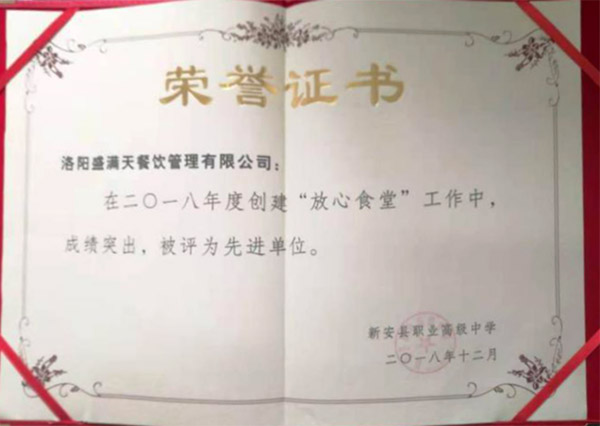 荣誉证书
洛阳盛满天餐饮管理有限公司：
在二〇一八年度创建“放心食堂”工作中，
成绩突出，被评为先进单位。
新安县职业高级中学
二〇一八年十二月